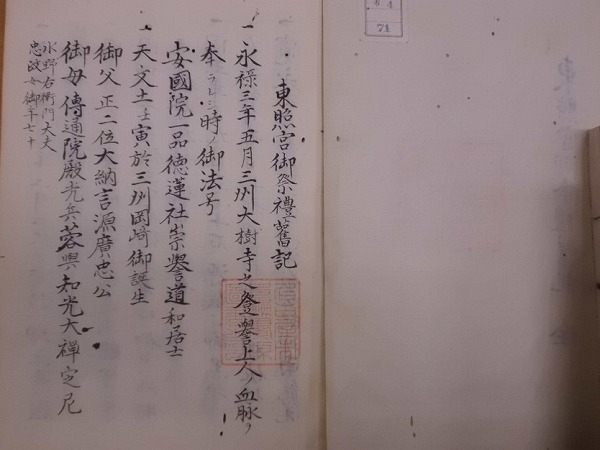 東照宮御祭禮舊記
一 永禄三年五月三州大樹寺之登譽上人ノ血脉ヲ
奉ラレシ時ノ御法号
安國院一品徳蓮社崇譽道和居士
一 天文十一壬寅於三州岡崎御誕生
御父 正二位大納言源廣忠公
御母 傳通院殿光兵蓉譽知光大禅定尼
水野右衛門大夫
忠政女御年七十
71